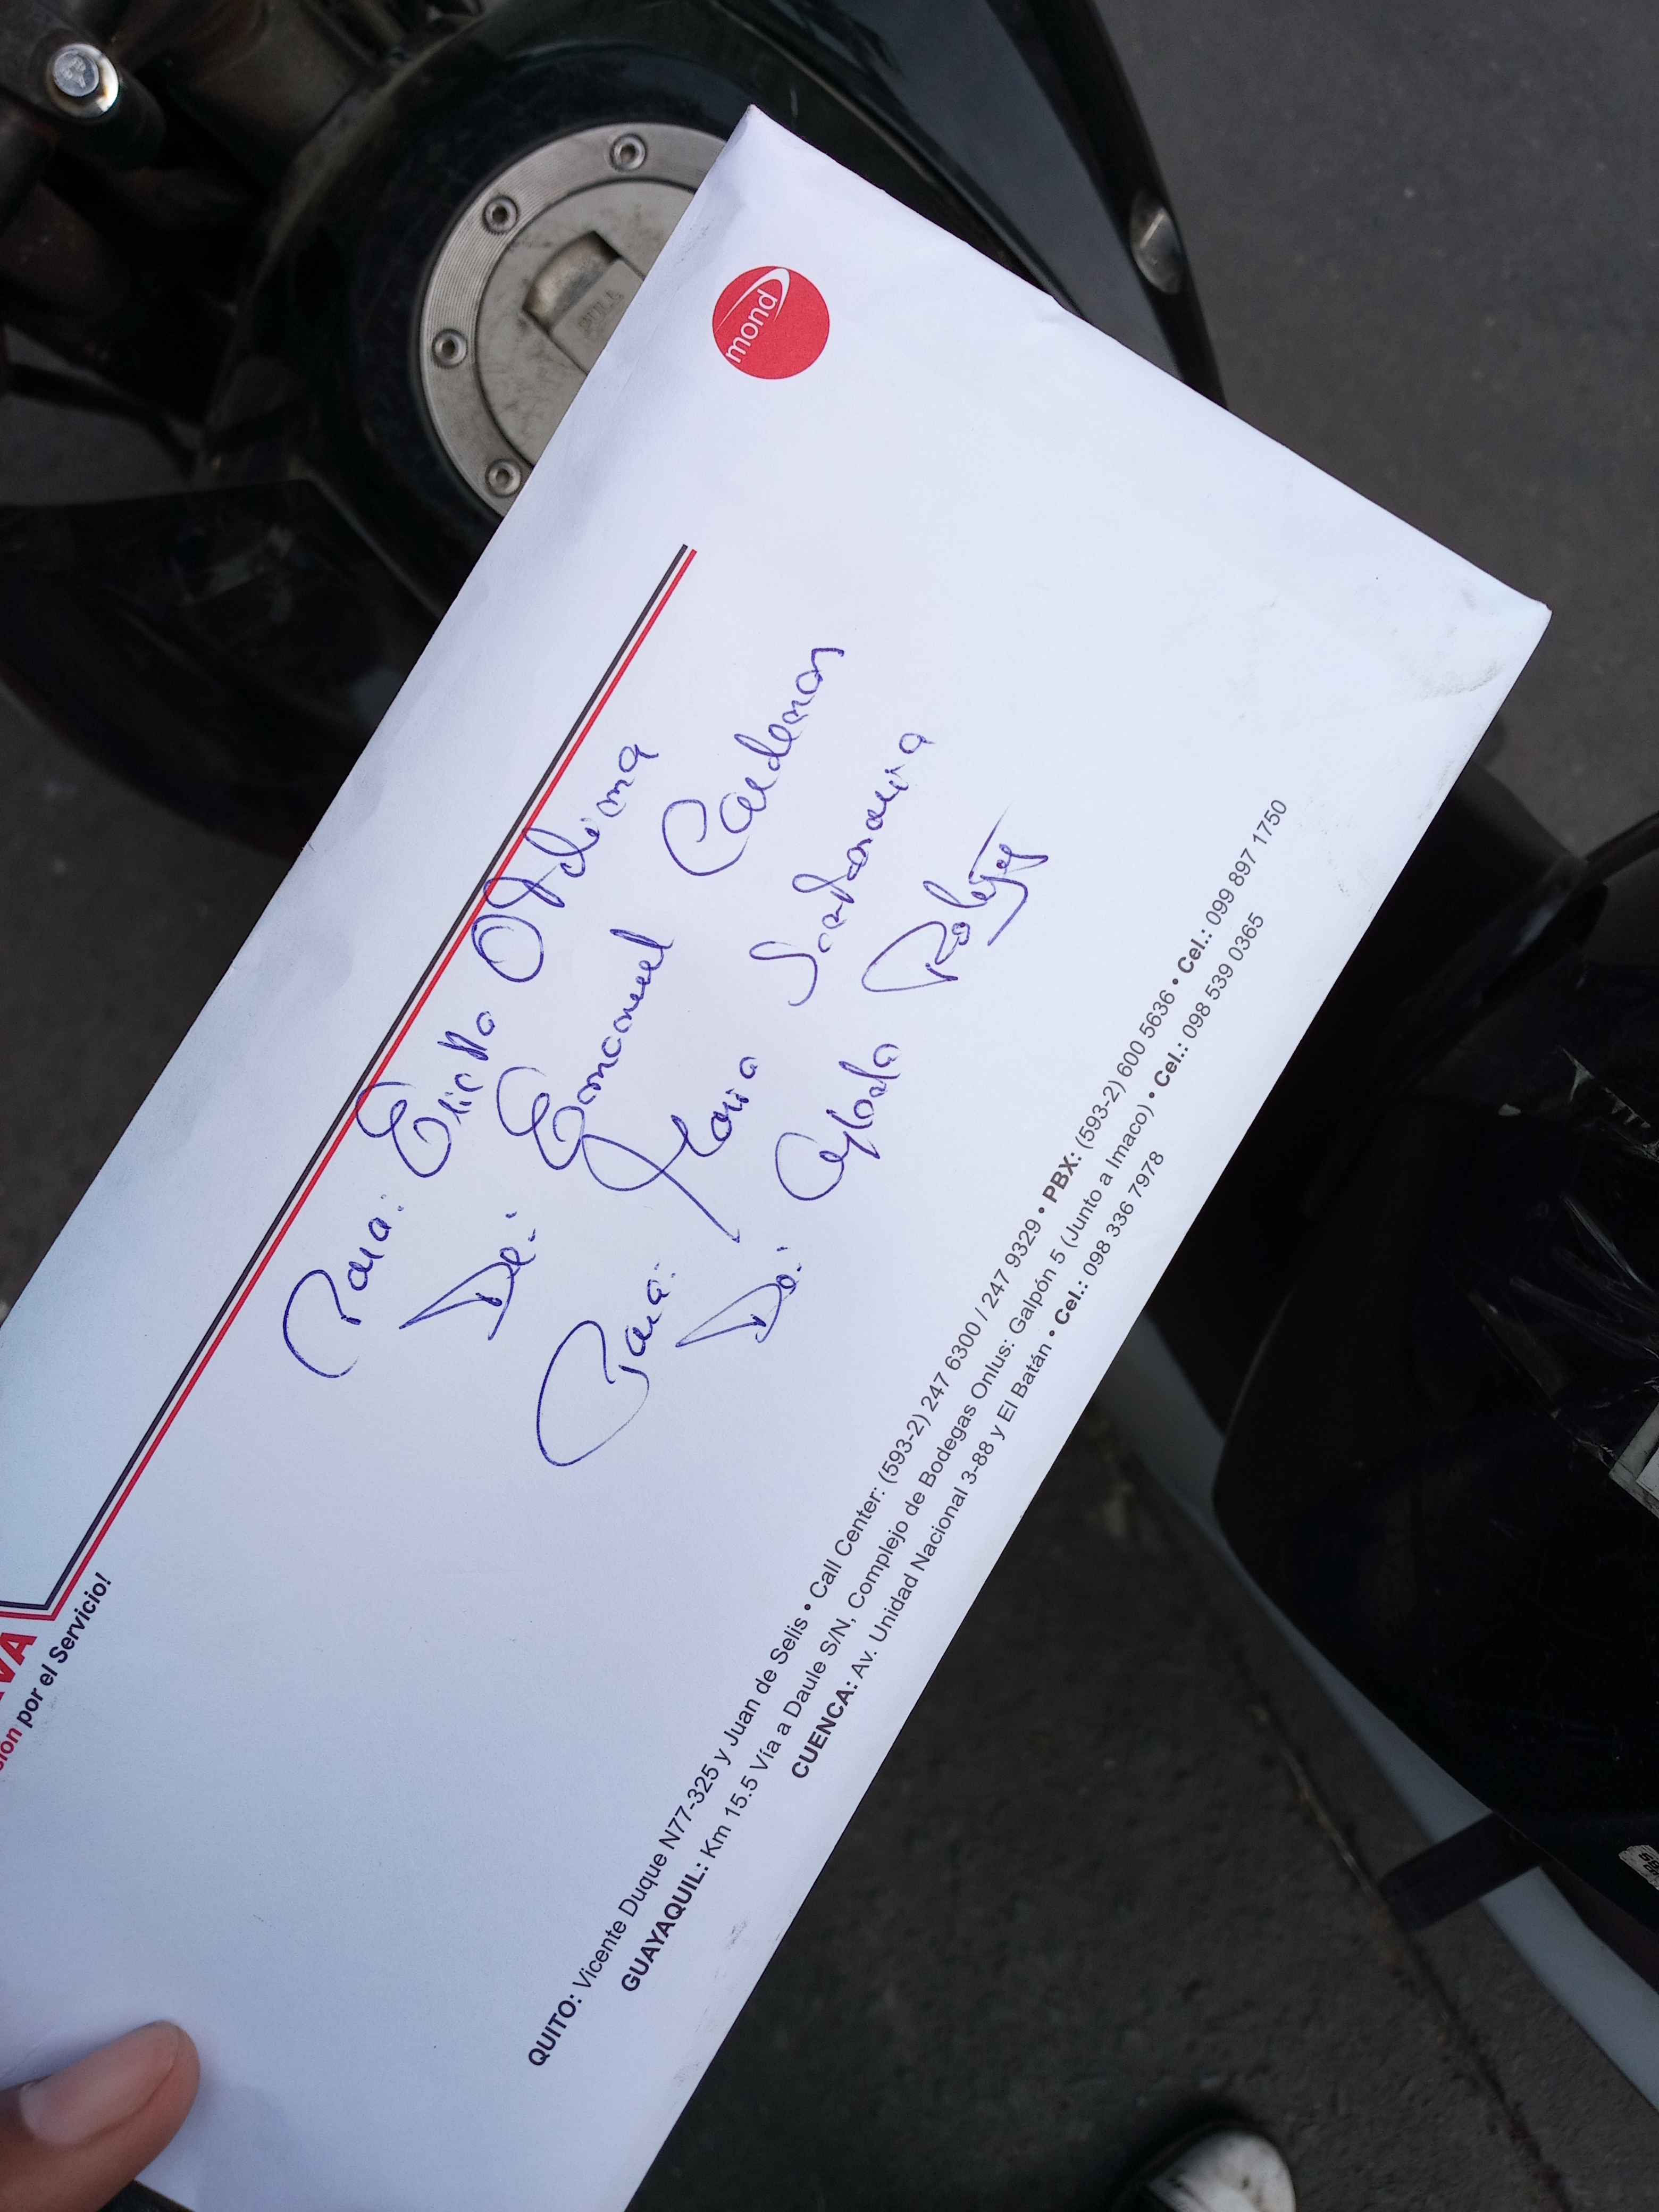 mond
Para:
De: Emmanuel Cardenas
Para: Maria
De:
VA
sion por el Servicio!
QUITO: Vicente Duque N77-325 y Juan de Selis • Call Center: (593-2) 247 6300 / 247 9329 • PBX: (593-2) 600 5636 • Cel.: 099 897 1750
GUAYAQUIL: Km 15.5 Vía a Daule S/N, Complejo de Bodegas Onlus: Galpón 5 (Junto a Imaco) • Cel.: 098 539 0365
CUENCA: Av. Unidad Nacional 3-88 y El Batán • Cel.: 098 336 7978